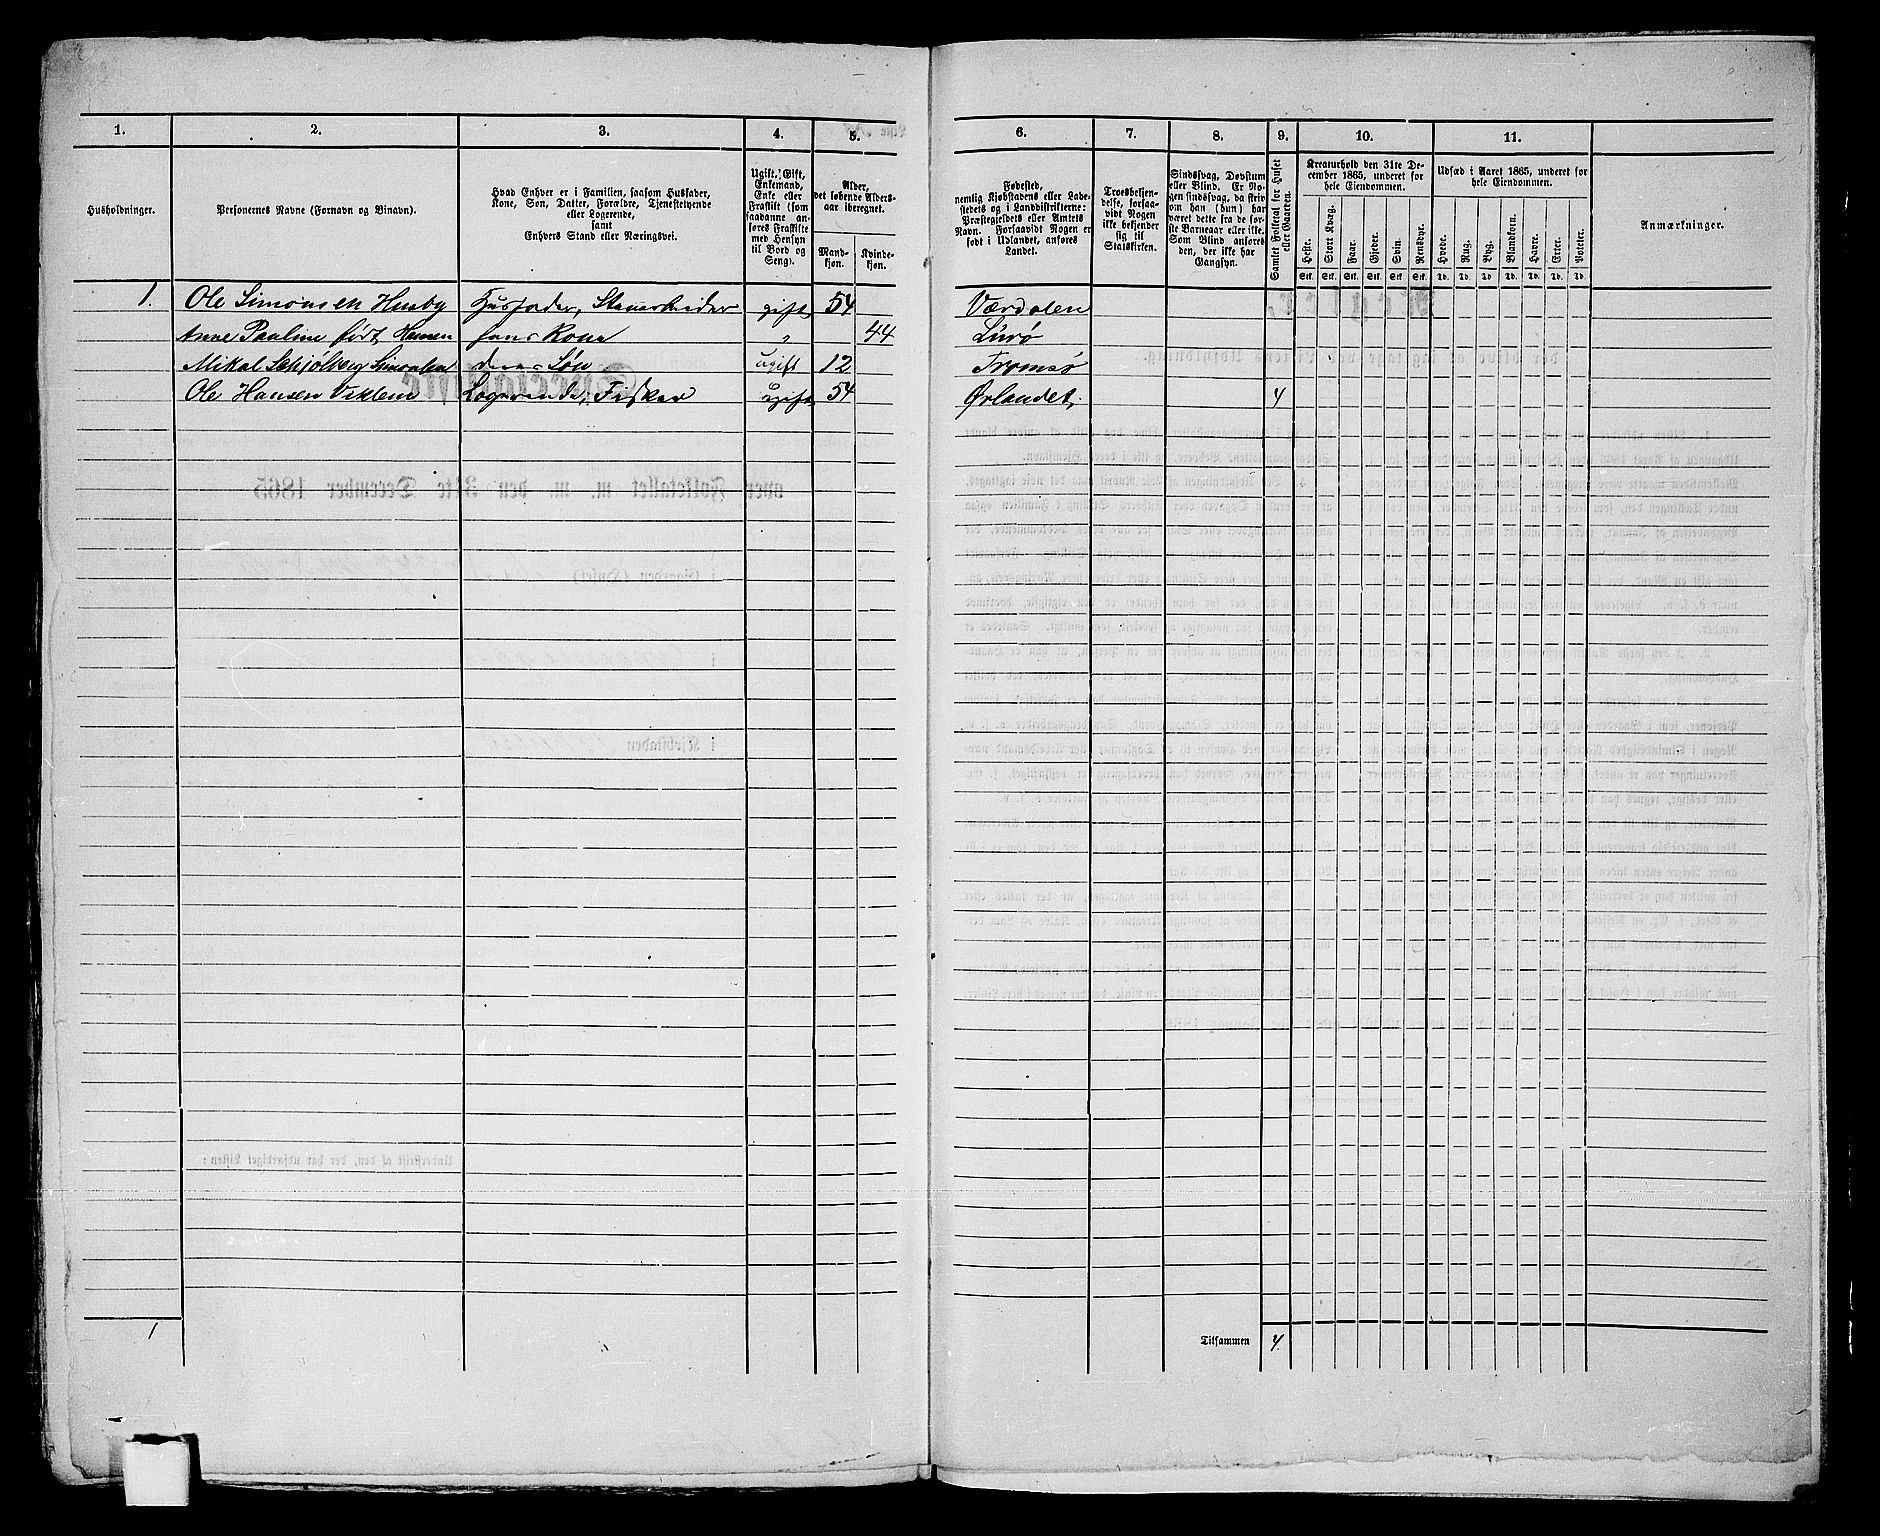 1. 2. 3. 4. 5. 6. 7. 8. 9. 10. 11.
Husholdninger.
Personernes Navne (Fornavn og Binavn).
Hvad Enhver er i Familien, saasom Husfader,
Kone, Søn, Datter, Forældre, Tjenestetyende
eller Logerende,
samt
Enhvers Stand eller Næringsvei.
Ugift, Gift,
Enkemand,
Enke eller
Fraskilt (som
saadanne an-
føres Fraskilte
med Hensyn
til Bord og
Seng).
Alder,
det løbende Alders-
aar iberegnet.
Mand-
kjøn.
Kvinde-
kjøn.
Fødested,
nemlig Kjøbstadens eller Lade-
stedets og i Landdistrikterne:
Præstegjeldets eller Amtets
Navn. Forsaavidt Nogen er
født i Udlandet, anføres
Landet.
Troesbekjen-
delse, forsaa-
vidt Nogen
ikke bekjender
sig til
Statskirken.
Sindssvag, Døvstum
eller Blind. Er No-
gen sindssvag, da skriv
om han (hun) har
været dette fra de før-
ste Barneaar eller ikke.
Som Blind anføres
den, der ikke har
Gangsyn.
Samlet Folketal for Huset
eller Gaarden.
Kreaturhold den 31te De-
cember 1865, underet for
hele Eiendommen.
Heste.
Stort Kvæg.
Faar.
Gjeder.
Svin.
Rensdyr.
Stk. Stk. Stk. Stk. Stk. Stk.
Udsæd i Aaret 1865, underet for
hele Eiendommen.
Hvede.
Rug.
Byg.
Blandkorn.
Havre.
Erter.
Poteter.
Td. Td. Td. Td. Td. Td. Td.
Anmærkninger.
1. Ole Simonsen Husby Husfader, Stenarbeider gift 54 Værdalen
Anne Pauline født Hansen hans Kone " 44 Lurø
Mikal Schjølberg Simonsen deres Søn ugift 12 Tromsø
Ole Hansen Logerende, Fisker ugift 54 Ørlandet. 4
1
Tilsammen 4.